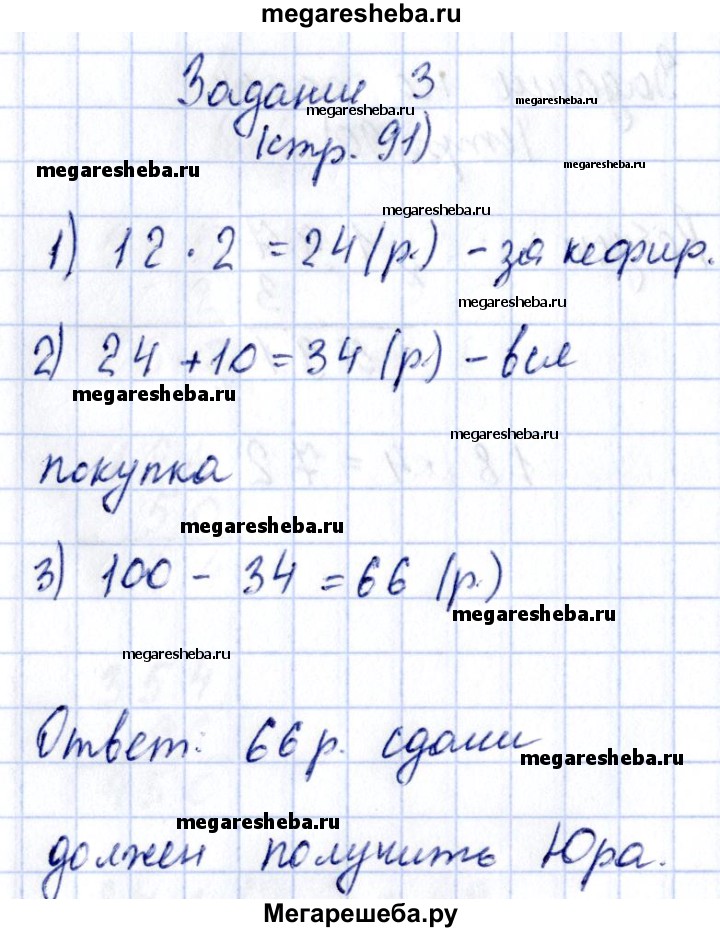 megaresheba.ru
Задание 3
megaresheba.ru
megaresheba.ru
(стр. 91)
megaresheba.ru
megaresheba.ru
megaresheba.ru
1) 12 · 2 = 24 (р.) - за кефир.
megaresheba.ru
2) 24 + 10 = 34 (р.) - вся
megaresheba.ru
megaresheba.ru
покупка
megaresheba.ru
3) 100 - 34 = 66 (р.)
megaresheba.ru
megaresheba.ru
Ответ: 66 р. сдачи
megaresheba.ru
megaresheba.ru
должен получить Юра.
Мегарешеба.ру